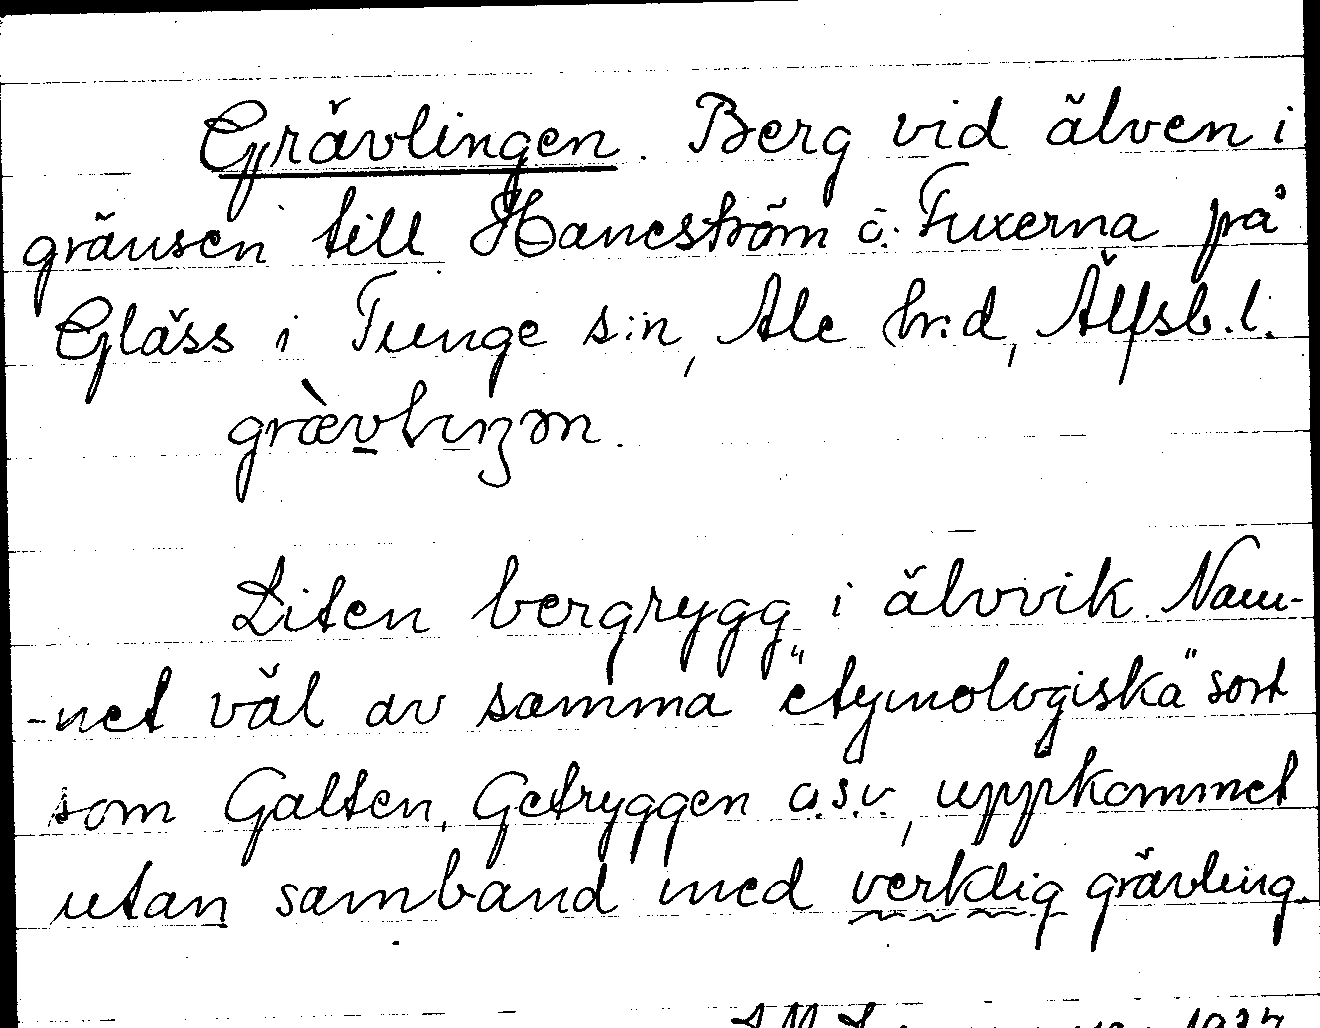 Grävlingen. Berg vid älven i
gränsen till Haneström ö. Fuxerna på
Gläss i Tunge s:n, Ale hr:d, Älfsb. l.
grævlıŋən.
Liten bergrygg i älvvik. Nam-
-net väl av samma "etymologiska" sort
som Galten, Getryggen o.s.v., uppkommet
utan samband med verklig grävling.